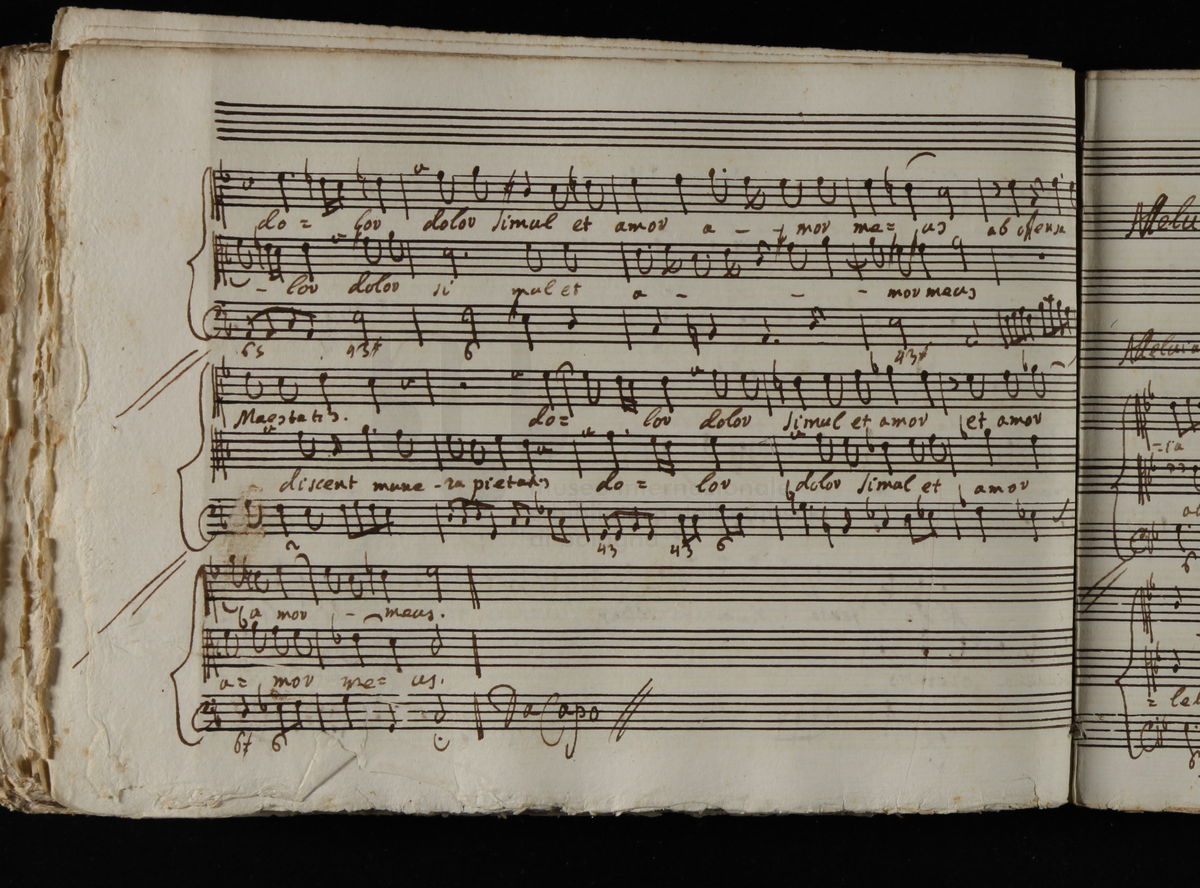 do = lor dolor simul et amor a - - mor me= us ab offensa
- lor dolor si mul et a - - - mor meus
65 43# 6 43#
Maestatis. do= lor dolor simul et amor et amor
discent mune-ra pietatis do = lor dolor simul et amor
2 43 43 6
a mor - meus.
a= mor me= us.
6 6
Da Capo
Allelu
Allelui
-ia
6
= le
6